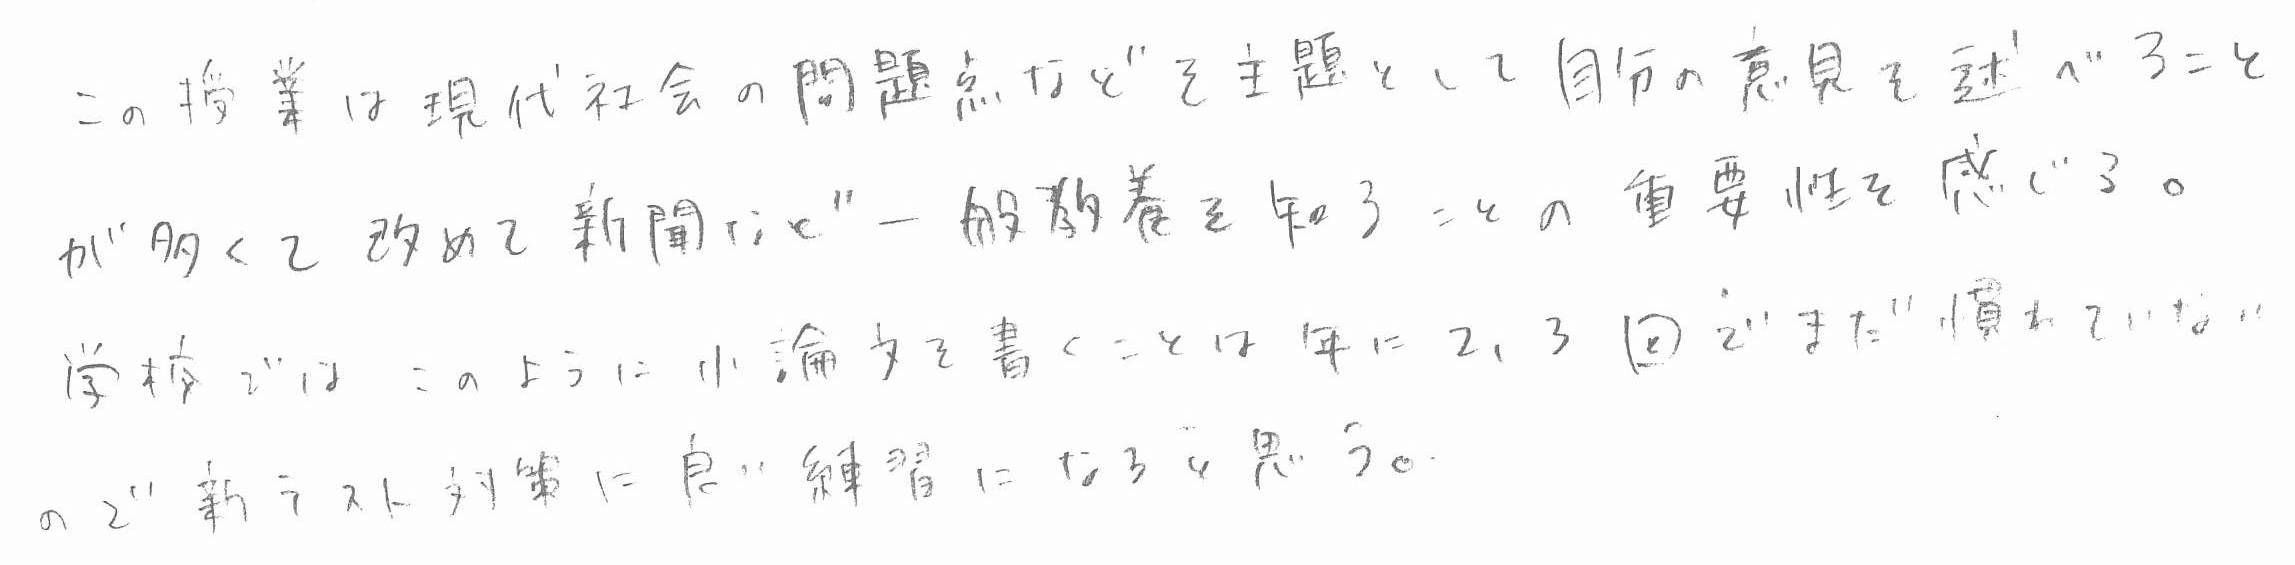 この授業は現代社会の問題点などを主題として自分の意見を述べること
が多くて改めて新聞など一般教養を知ることの重要性を感じる。
学校ではこのように小論文を書くことは年に2、3回でまだ慣れていない
ので新テスト対策に良い練習になると思う。